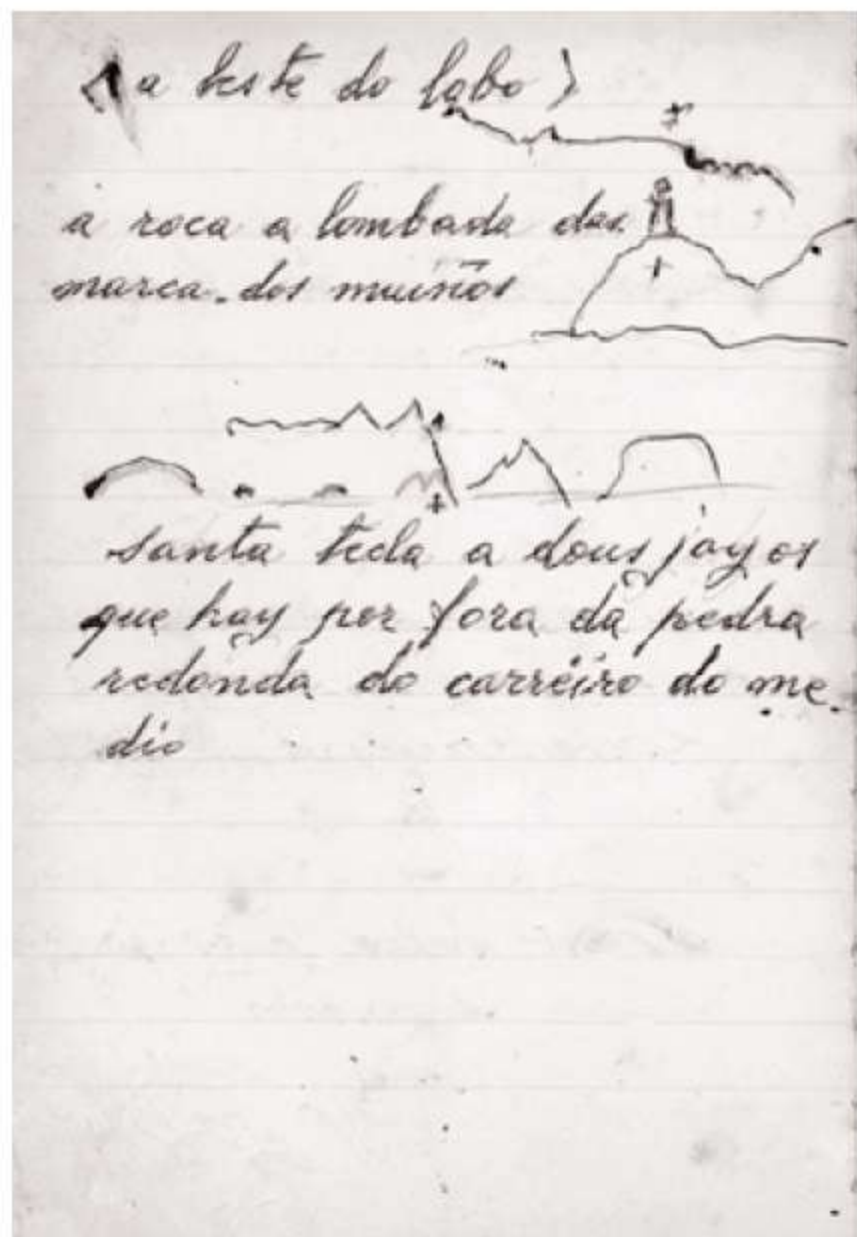 (a leste do lobo)
a roca a lombada das
marca. dos muiños
santa tecla a dous jayos
que hay por fora da pedra
redonda do carreiro do me
dio